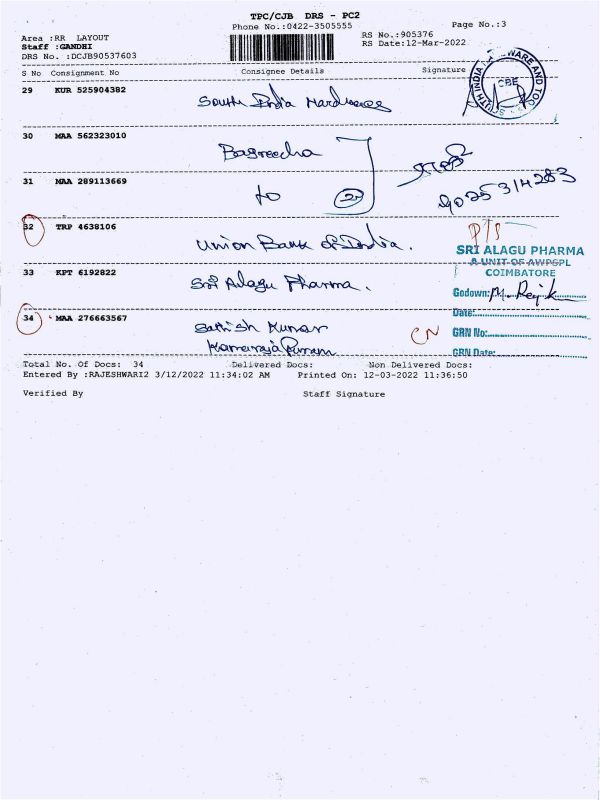 TPC/CJB DRS - PC2
Phone No.:0422-3505555
Page No.:3
Area :RR LAYOUT
RS No.:905376
Staff :GANDHI
RS Date:12-Mar-2022
DRS No. :DCJB90537603
S No Consignment No Consignee Details Signature
29 KUR 525904382 South India Hardwares
SOUTH INDIA WARE AND TOO
CBE
30 MAA 562323010 Bagreecha
31 MAA 289113669 to
9025314283
32 TRP 4638106 Union Bank of India.
SRI ALAGU PHARMA
A UNIT OF AWPSPL
COIMBATORE
33 KPT 6192822 Sri Alagu Pharma.
Godown:
Date:
34 MAA 276663567 Sathish Kumar
CN
GRN No:
Kamaraja Puram
GRN Date:
Total No. Of Docs: 34 Delivered Docs: Non Delivered Docs:
Entered By :RAJESHWARI2 3/12/2022 11:34:02 AM Printed On: 12-03-2022 11:36:50
Verified By Staff Signature